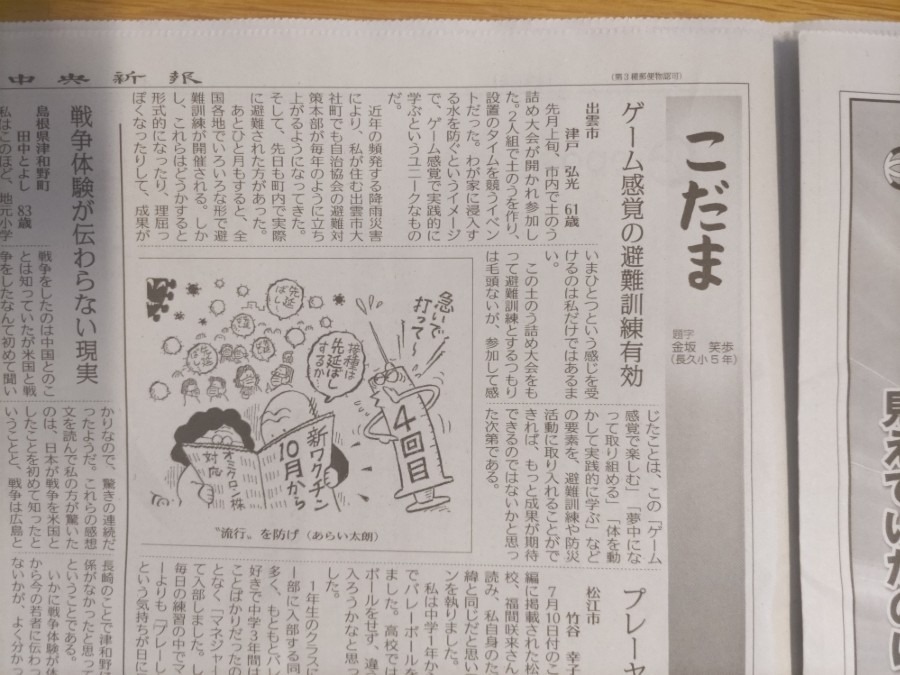 中央新報
(第3種郵便物認可)
こだま
題字
金坂 笑歩
(長久小5年)
ゲーム感覚の避難訓練有効
出雲市
津戸 弘光 61歳
先月上旬、市内で土のう
詰め大会が開かれ参加し
た。2人組で土のうを作り、
設置のタイムを競うイベン
トだった。わが家に浸入す
る水を防ぐというイメージ
で、ゲーム感覚で実践的に
学ぶというユニークなもの
だ。
近年の頻発する降雨災害
により、私が住む出雲市大
社町でも自治協会の避難対
策本部が毎年のように立ち
上がるようになってきた。
そして、先日も町内で実際
に避難された方があった。
あとひと月もすると、全
国各地でいろいろな形で避
難訓練が開催される。しか
し、これらはどうかすると
形式的になったり、理屈っ
ぽくなったりして、成果が
いまひとつという感じを受
けるのは私だけではあるま
い。
この土のう詰め大会をも
って避難訓練とするつもり
は毛頭ないが、参加して感
じたことは、この「ゲーム
感覚で楽しむ」「夢中にな
って取り組める」「体を動
かして実践的に学ぶ」など
の要素を、避難訓練や防災
活動に取り入れることがで
きれば、もっと成果が期待
できるのではないかと思っ
た次第である。
急いで
打って~
4回目
接種は
先延ばし
するか…
先延
ばし
先延
ばし
先延
ばし
新ワクチン
10月から
オミクロン株
対応
〝流行〟を防げ(あらい太朗)
戦争体験が伝わらない現実
島根県津和野町
田中とよし 83歳
私はこのほど、地元小学
戦争をしたのは中国とのこ
とは知っていたが米国と戦
争をしたなんて初めて聞い
かりなので、驚きの連続だ
ったようだ。これらの感想
文を読んで私の方が驚いた
のは、日本が戦争を米国と
したことを初めて知ったと
いうことと、戦争は広島と
長崎のことで津和野
係がなかったと思って
ということである。
いかに戦争体験が体
から今の若者に伝わっ
ないかが、よく分か
プレーヤ
松江市
竹谷 幸子
7月10日付のこ
編に掲載された松
校、福間咲来さん
読み、私自身のた
緯と同じだと思い
ンを執りました。
私は中学1年か
でバレーボールを
ました。高校では
ボールをせず、違
入ろうかなと思っ
した。
1年生のクラスに
一部に入部する同
多く、もともとバレ
好きで中学3年間は
ことばかりだったの
となく「マネジャー
て入部しました。し
毎日の練習の中でマ
ーよりも「プレーし
という気持ちが日に
見ていたのに